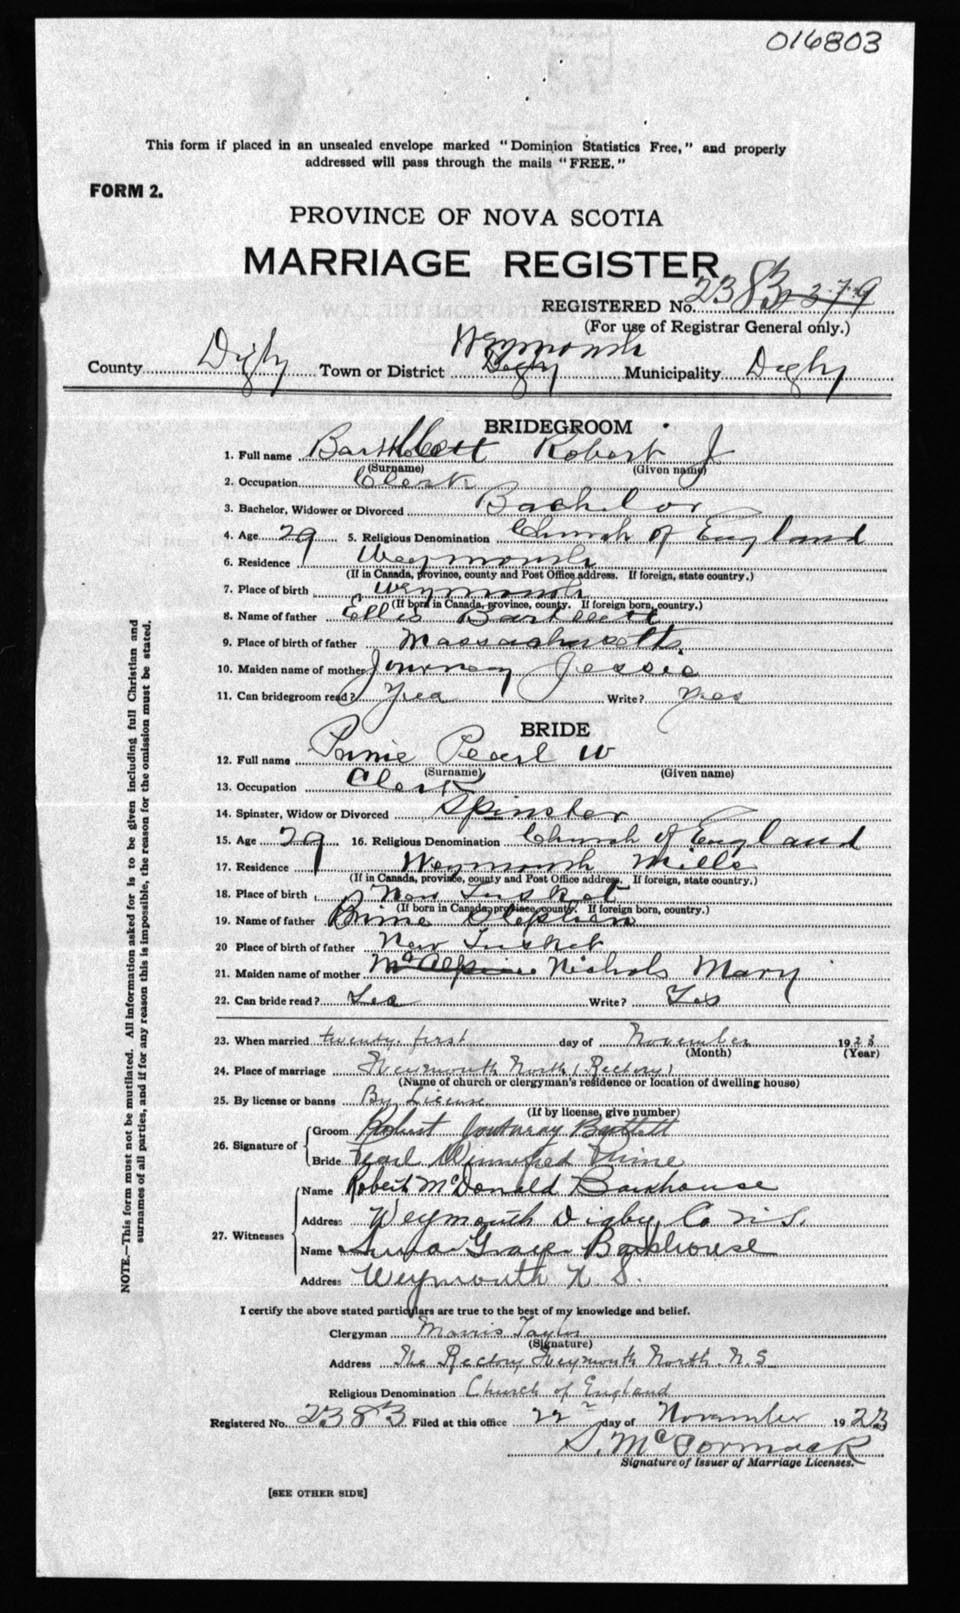 016803
This form if placed in an unsealed envelope marked "Dominion Statistics Free," and properly
addressed will pass through the mails "FREE."
FORM 2.
PROVINCE OF NOVA SCOTIA
MARRIAGE REGISTER
REGISTERED No. 2383
(For use of Registrar General only.)
Weymouth
County Digby Town or District Digby Municipality Digby
BRIDEGROOM
1. Full name Bartlett Robert J
(Surname) (Given name)
2. Occupation Clerk
3. Bachelor, Widower or Divorced Bachelor
4. Age 29 5. Religious Denomination Church of England
6. Residence Weymouth
(If in Canada, province, county and Post Office address. If foreign, state country.)
7. Place of birth Weymouth
(If born in Canada, province, county. If foreign born, country.)
8. Name of father Ellis Bartlett
9. Place of birth of father Massachusetts
10. Maiden name of mother Journeay Jessie
11. Can bridegroom read? Yes Write? Yes
BRIDE
12. Full name Prime Pearl W
(Surname) (Given name)
13. Occupation Clerk
14. Spinster, Widow or Divorced Spinster
15. Age 29 16. Religious Denomination Church of England
17. Residence Weymouth Mills
(If in Canada, province, county and Post Office address. If foreign, state country.)
18. Place of birth New Tusket
(If born in Canada, province, county. If foreign born, country.)
19. Name of father Prime Stephen
20 Place of birth of father New Tusket
21. Maiden name of mother McAlpine Nichols Mary
22. Can bride read? Yes Write? Yes
23. When married twenty-first day of November 1923
(Month) (Year)
24. Place of marriage Weymouth North (Rectory)
(Name of church or clergyman's residence or location of dwelling house)
25. By license or banns By License
(If by license, give number)
26. Signature of
Groom Robert Bartlett
Bride Pearl Winnifred Prime
27. Witnesses
Name Robert McDonald Backhouse
Address Weymouth Digby Co N.S.
Name Grace Backhouse
Address Weymouth N.S.
I certify the above stated particulars are true to the best of my knowledge and belief.
Clergyman Morris Taylor
(Signature)
Address The Rectory, Weymouth North. N.S.
Religious Denomination Church of England
Registered No. 2383 Filed at this office 22nd day of November 1923
S. McCormack
Signature of Issuer of Marriage Licenses.
[SEE OTHER SIDE]
NOTE.—This form must not be mutilated. All information asked for is to be given including full Christian and
surnames of all parties, and if for any reason this is impossible, the reason for the omission must be stated.